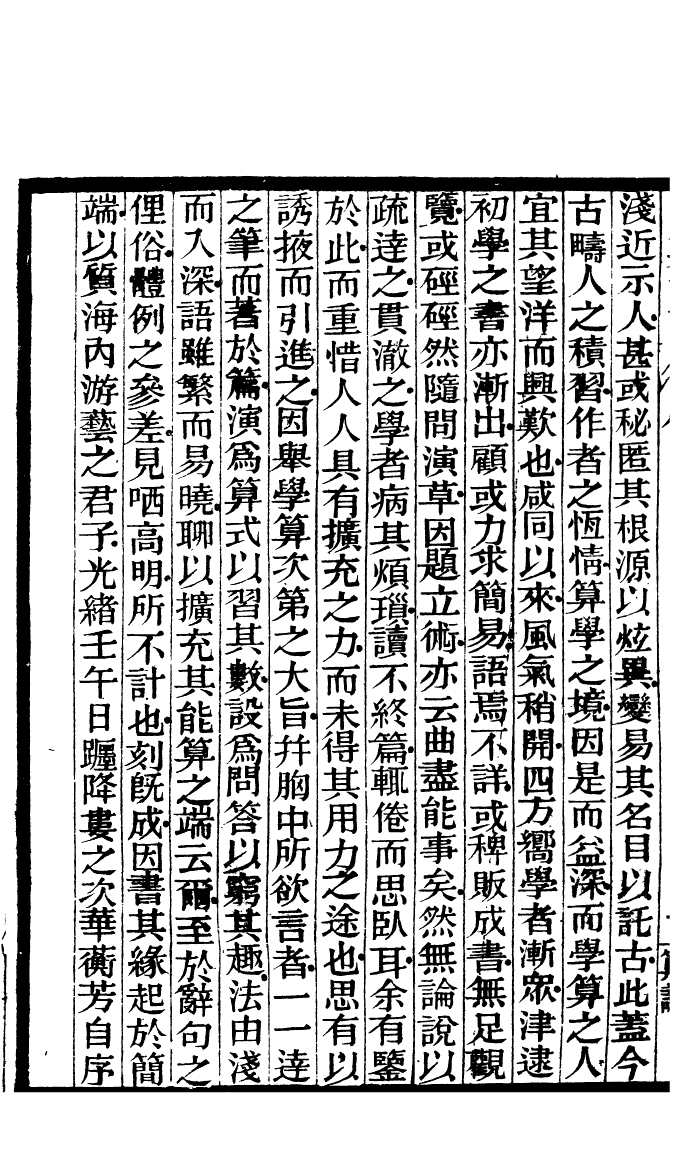 淺近示人甚或秘匿其根源以炫異變易其名目以託古此蓋今
古疇人之積習作者之恆情算學之境因是而益深而學算之人
宜其望洋而興歎也咸同以來風氣稍開四方嚮學者漸眾津逮
初學之書亦漸出顧或力求簡易語焉不詳或稗販成書無足觀
覽或硜硜然隨問演草因題立術亦云曲盡能事矣然無論說以
疏達之貫澈之學者病其煩瑣讀不終篇輒倦而思臥耳余有鑒
於此而重惜人人具有擴充之力而未得其用力之途也思有以
誘掖而引進之因舉學算次第之大旨幷胸中所欲言者一一達
之筆而著於篇演為算式以習其數設為問答以窮其趣法由淺
而入深語雖繁而易曉聊以擴充其能算之端云爾至於辭句之
俚俗體例之參差見哂高明所不計也刻旣成因書其緣起於簡
端以質海內游藝之君子光緒壬午日躔降婁之次華蘅芳自序